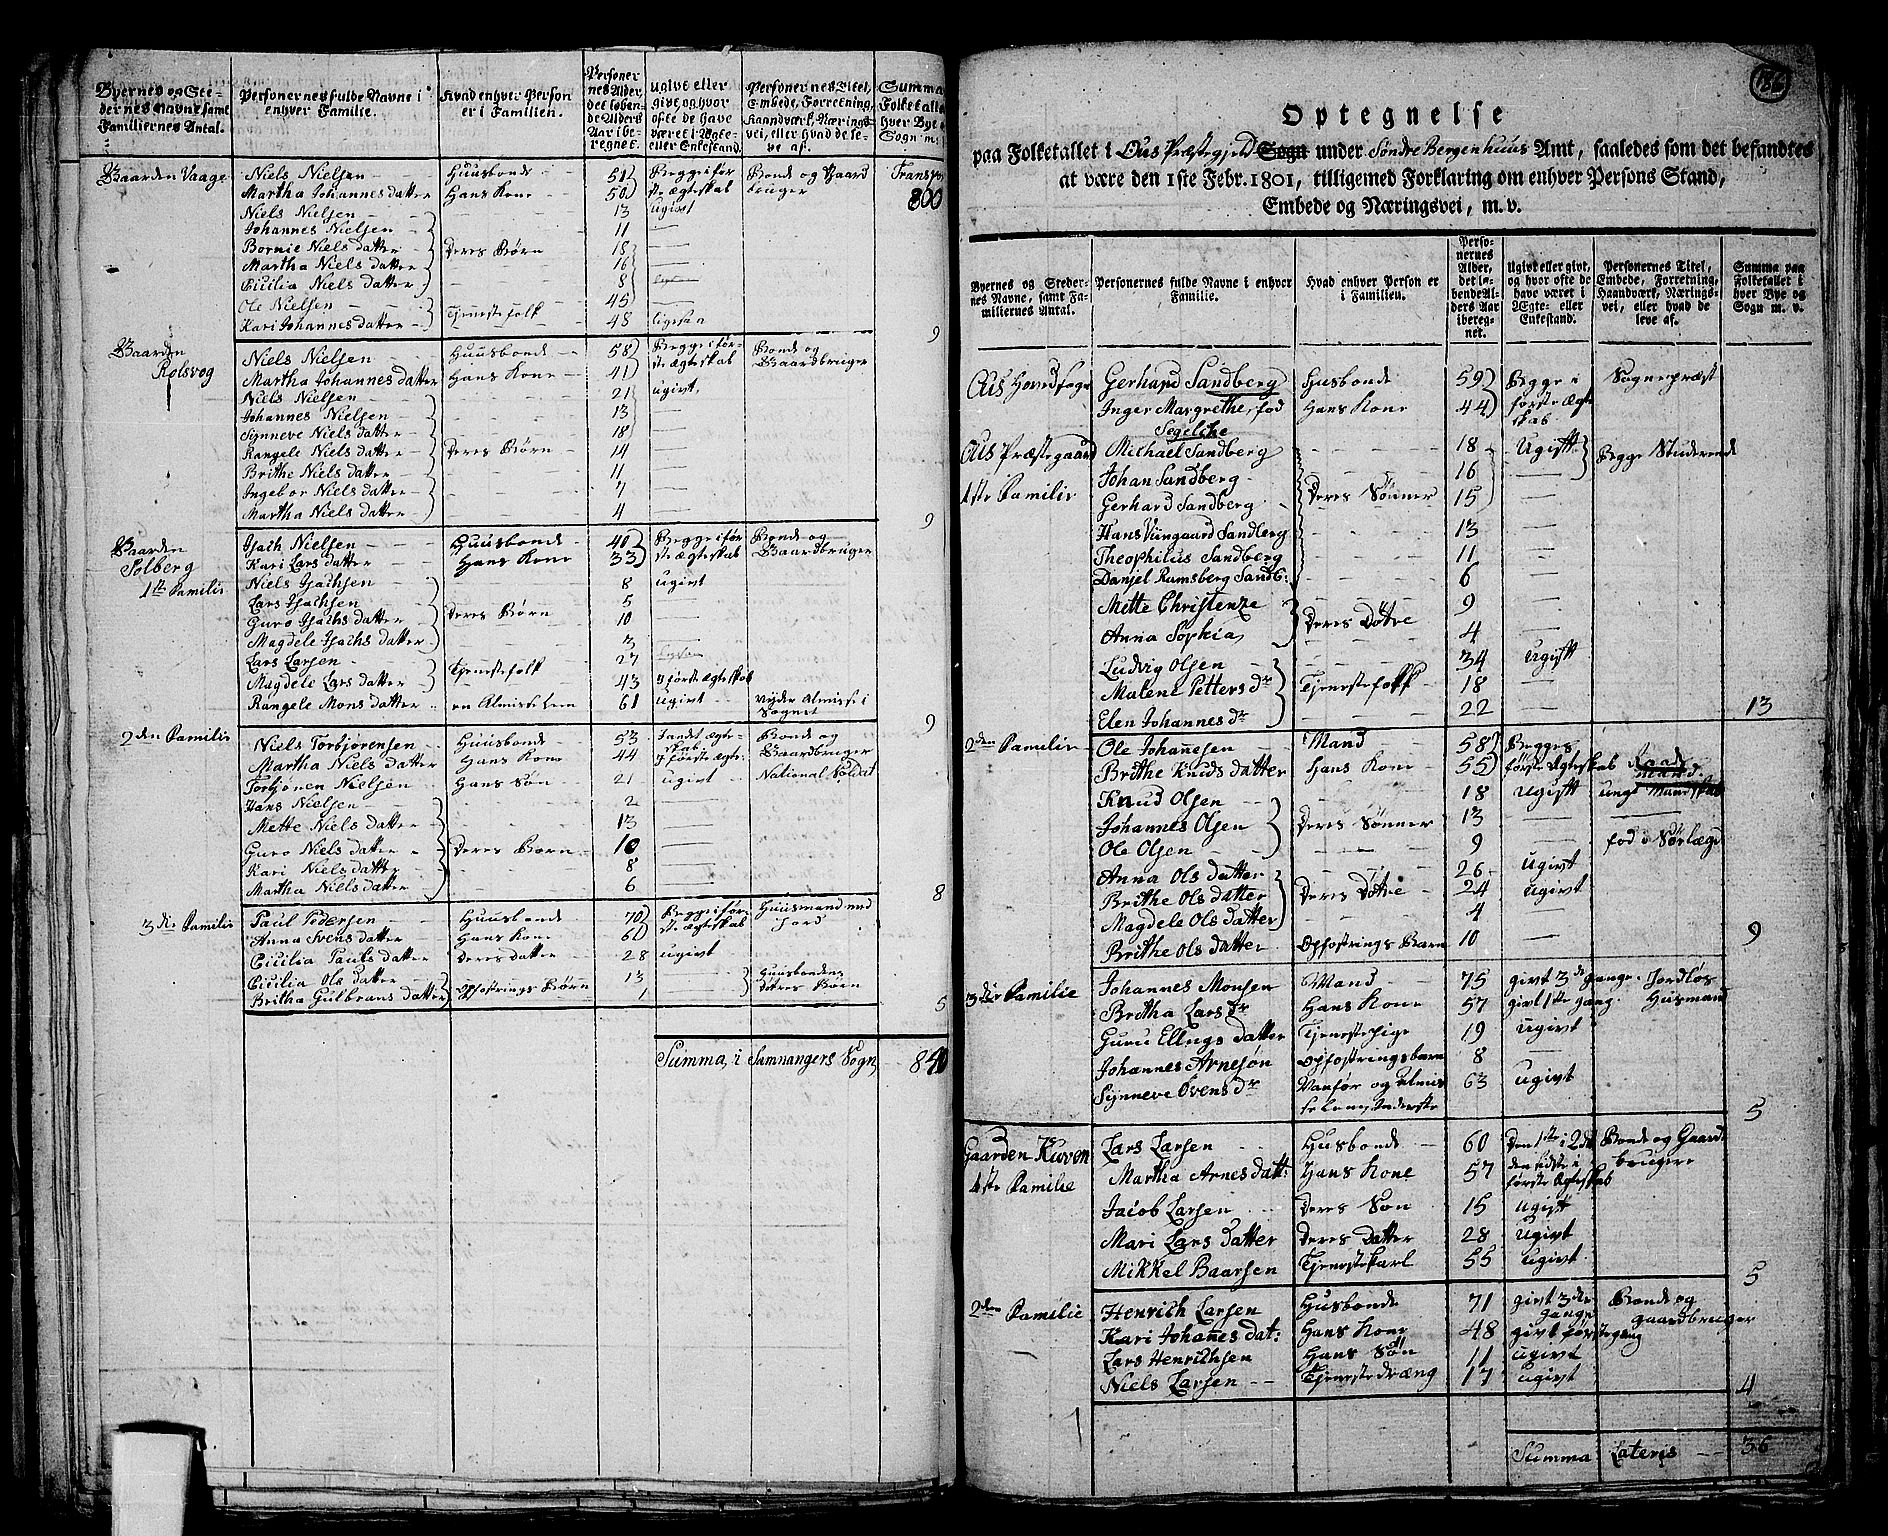 Byernes og Ste-
dernes Navne samt
Familiernes Antal.
Personernes fulde Navne i
enhver Familie.
Hvad enhver Person
er i Familien.
Personer
nes Alder,
det løben-
de Alders
Aar ibe-
regnet.
ugivt eller
givt, og hvor
ofte de have
været i Ægte-
eller Enkestand.
Personernes Titel,
Embede, Forretning,
Haandværk, Nærings-
vei, eller hvad de le-
ve af.
Summa
Folketallet
hver Bye
Sogn m.
Gaarden Vaage Niels Nielsen Huusbonde 51 Begge i før Bonde og Gaard Transp
Martha Johannes datter Hans Kone 50 ste ægteskab bruger 800
Niels Nielsen 13 ugivt
Johannes Nielsen 11 —
Bornie Niels datter Deres Børn 18 —
Martha Niels datter 16 —
Cicilia Niels datter 8
Ole Nielsen Tjenestefolk 45 —
Kari Johannes datter 48 ligesaa
9
Gaarden Rolsvog Niels Nielsen Huusbonde 58 Begge i før- Bonde og
Martha Johannes datter Hans Kone 41 ste ægteskab Gaardbruger
Niels Nielsen 21 ugivt,
Johannes Nielsen 13 —
Synneve Niels datter 18 —
Rangele Niels datter Deres Børn 14 —
Brithe Niels datter 11 —
Ingebor Niels datter 7 —
Martha Niels datter 4 —
9
Gaarden Solberg Isach Nielsen Huusbonde 40 Begge i før Bonde og
Kari Lars datter Hans Kone 33 ste ægteskab Gaardbruger
1ste Familie Niels Isachsen 8 ugivt
Lars Isachsen 5
Guro Isachs datter Deres Børn 10 —
Magdele Isachs datter 3 —
Lars Larsen 27
Magdele Lars datter Tjenestefolk 43 i første ægteskab
Rangele Mons datter en Almisse Lem 61 ugivt nyder Almisse i
Sognet
9
2den Familie Niels Torbjørensen Huusbonde 53 i andet ægte- Bonde og
skab
Martha Niels datter Hans Kone 44 i første ægte: Gaardbruger
Torbjönen Nielsen Hans Søn 21 ugivt National Soldat
Hans Nielsen 2 —
Mette Niels datter 13 —
Guro Niels datter Deres Børn 10 —
Kari Niels datter 8 —
Martha Niels datter 6 —
8
3die Familie Paul Pedersen Huusbonde 70 Begge i før- Huusmand med
Anna Svens datter Hans Kone 61 ste ægteskab Jord
Cicilia Pauls datter Deres datter 28 ugivt
Cicilia Ols datter 13 — Huusbondens
Britha Gulbrans datter Opfostrings Børn 1 — Deres Børn
5
Summa, i Samnangers Sogn, 840
186
Optegnelse
paa Folketallet i Ous Præstegield Sogn under Søndre Bergenhuus Amt, saaledes som det befandtes
at være den 1ste Febr. 1801, tilligemed Forklaring om enhver Persons Stand,
Embede og Næringsvei, m. v.
Byernes og Steder-
nes Navne, samt Fa-
miliernes Antal.
Personernes fulde Navne i enhver
Familie.
Hvad enhver Person er
i Familien.
Perso-
nernes
Alder,
det lø-
bende Al-
ders Aar
iberegnet.
Ugivt eller givt,
og hvor ofte de
have været i
Ægte- eller
Enkestand.
Personernes Titel,
Embede, Forretning,
Haandværk, Nærings-
vei, eller hvad de
leve af.
Summa paa
Folketallet i
hver Bye og
Sogn m. v.
Ous Hovedsogn Gerhard Sandberg Husbonde 59 Begge i Sognepræst
Inger Margrethe, fød Hans Kone 44 første ægte
Segelcke skab
Ous Præstegaard Michael Sandberg 18 Ugift Begge Studerende
Johan Sandberg 16 —
1ste Familie Gerhard Sandberg Deres Sønner 15 —
Hans Wiingaard Sandberg 13 —
Theophilus Sandberg 11 —
Danjel Ramsberg Sandb: 6 —
Mette Christenze Deres Døtre 9 —
Anna Sophia 4 —
Ludvig Olsen 34 ugift
Malene Petters dr Tjenestefolk 18 —
Elen Johannes dr 22 —
13
2den Familie Ole Johañesen Mand 58 Begges
Brithe Knuds datter Hans Kone 55 første Ægteskab
Knud Olsen 18 ugift ungt Mandskab
Johannes Olsen Deres Sønner 13 —
Ole Olsen 9 — fød i Sørlægd
Anna Ols datter 26 ugivt
Brithe Ols datter Deres Døtre 24 ugivt
Magdele Ols datter 4 —
Brithe Ols datter Opfostrings Barn 10 —
9
3die Familie Johannes Monsen Mand 75 givt 3de gange. Jordløs
Britha Lars dr Hans Kone 57 givt 1ste gang. Husmand
Guru Ellngs datter Tjenestepige 19 ugivt
Johannes Arnesön Opfostringsbarn 8 —
Synneve Ovens dr Vanfør og Almis 63 ugivt
5
Gaarden Kuven Lars Larsen Husbonde 60 Den 1ste i 2det Bonde og Gaard
1ste Familie Martha Arnes datt: Hans Kone 57 den sidste i bruger
første Ægteskab
Jacob Larsen Deres Søn 15 ugift
Mari Lars Datter Deres Datter 28 ugivt
Mikkel Baarsen Tjenestekarl 55 ugivt
5
2den Familie Henrich Larsen Husbonde 71 givt 3de Bonde og
gange gaardbruger
Kari Johañes dat: Hans Kone 48 givt første gang
Lars Henrichsen Hans Søn 11 ugivt
Niels Larsen Tjenestedræng 17 ugivt
4
Summa Lateris 36